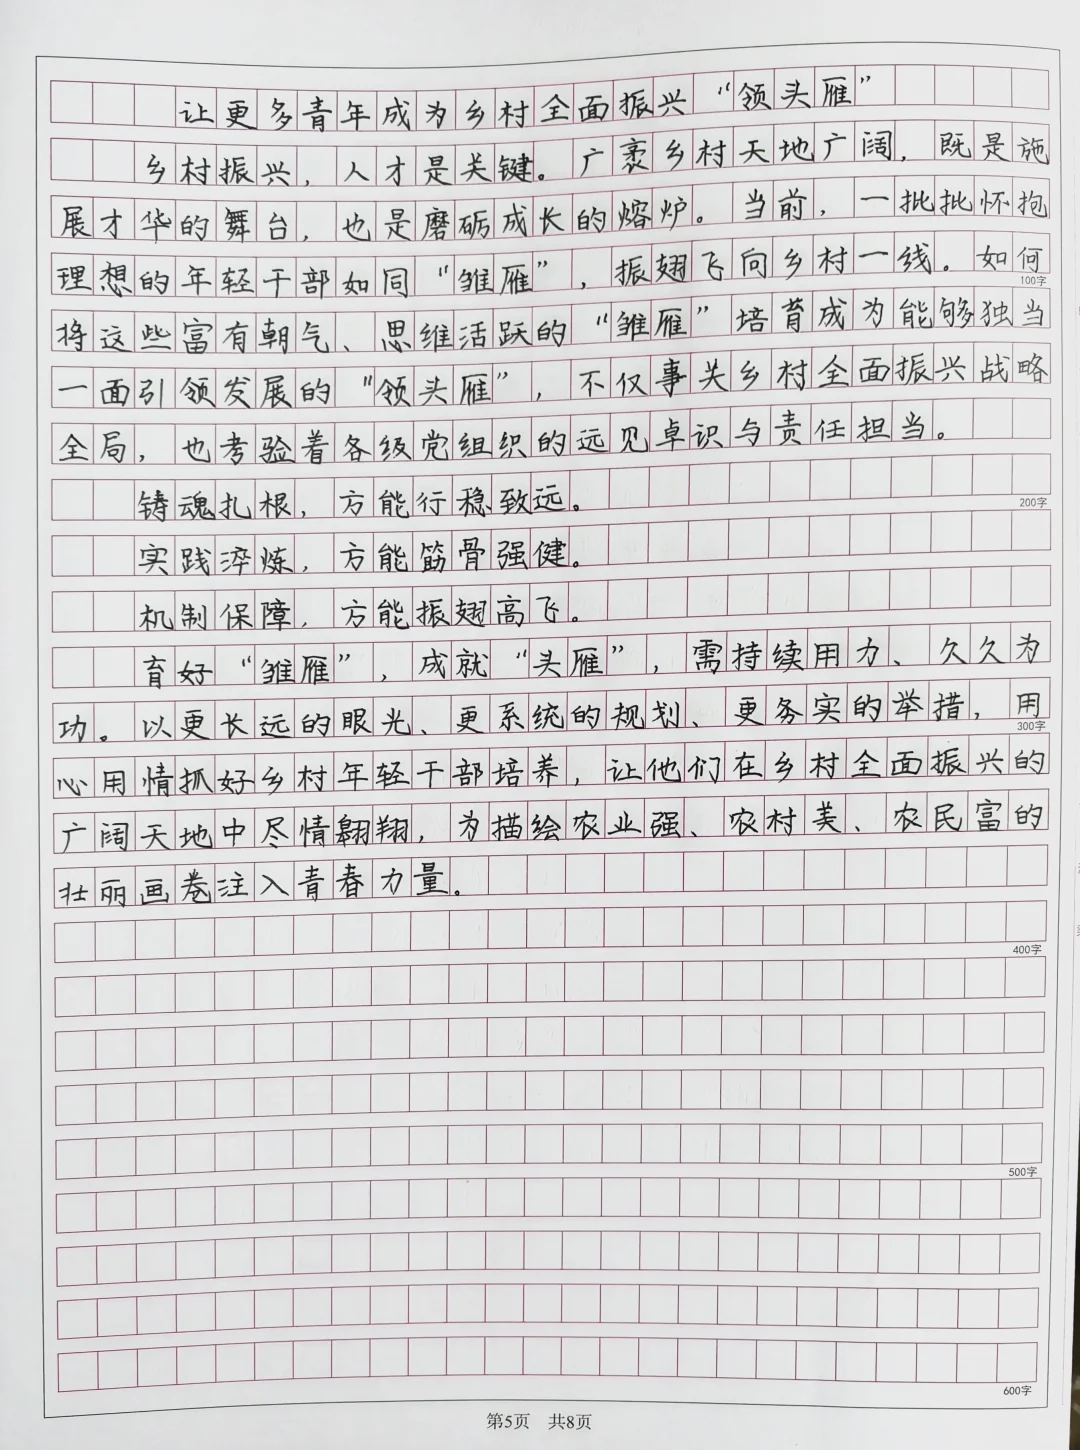 让更多青年成为乡村全面振兴“领头雁”
乡村振兴，人才是关键。广袤乡村天地广阔，既是施
展才华的舞台，也是磨砺成长的熔炉。当前，一批批怀抱
理想的年轻干部如同“雏雁”，振翅飞向乡村一线。如何
100字
将这些富有朝气、思维活跃的“雏雁”培育成为能够独当
一面引领发展的“领头雁”，不仅事关乡村全面振兴战略
全局，也考验着各级党组织的远见卓识与责任担当。
铸魂扎根，方能行稳致远。
200字
实践淬炼，方能筋骨强健。
机制保障，方能振翅高飞。
育好“雏雁”，成就“头雁”，需持续用力、久久为
功。以更长远的眼光、更系统的规划、更务实的举措，用
300字
心用情抓好乡村年轻干部培养，让他们在乡村全面振兴的
广阔天地中尽情翱翔，为描绘农业强、农村美、农民富的
壮丽画卷注入青春力量。
400字
500字
600字
第5页 共8页